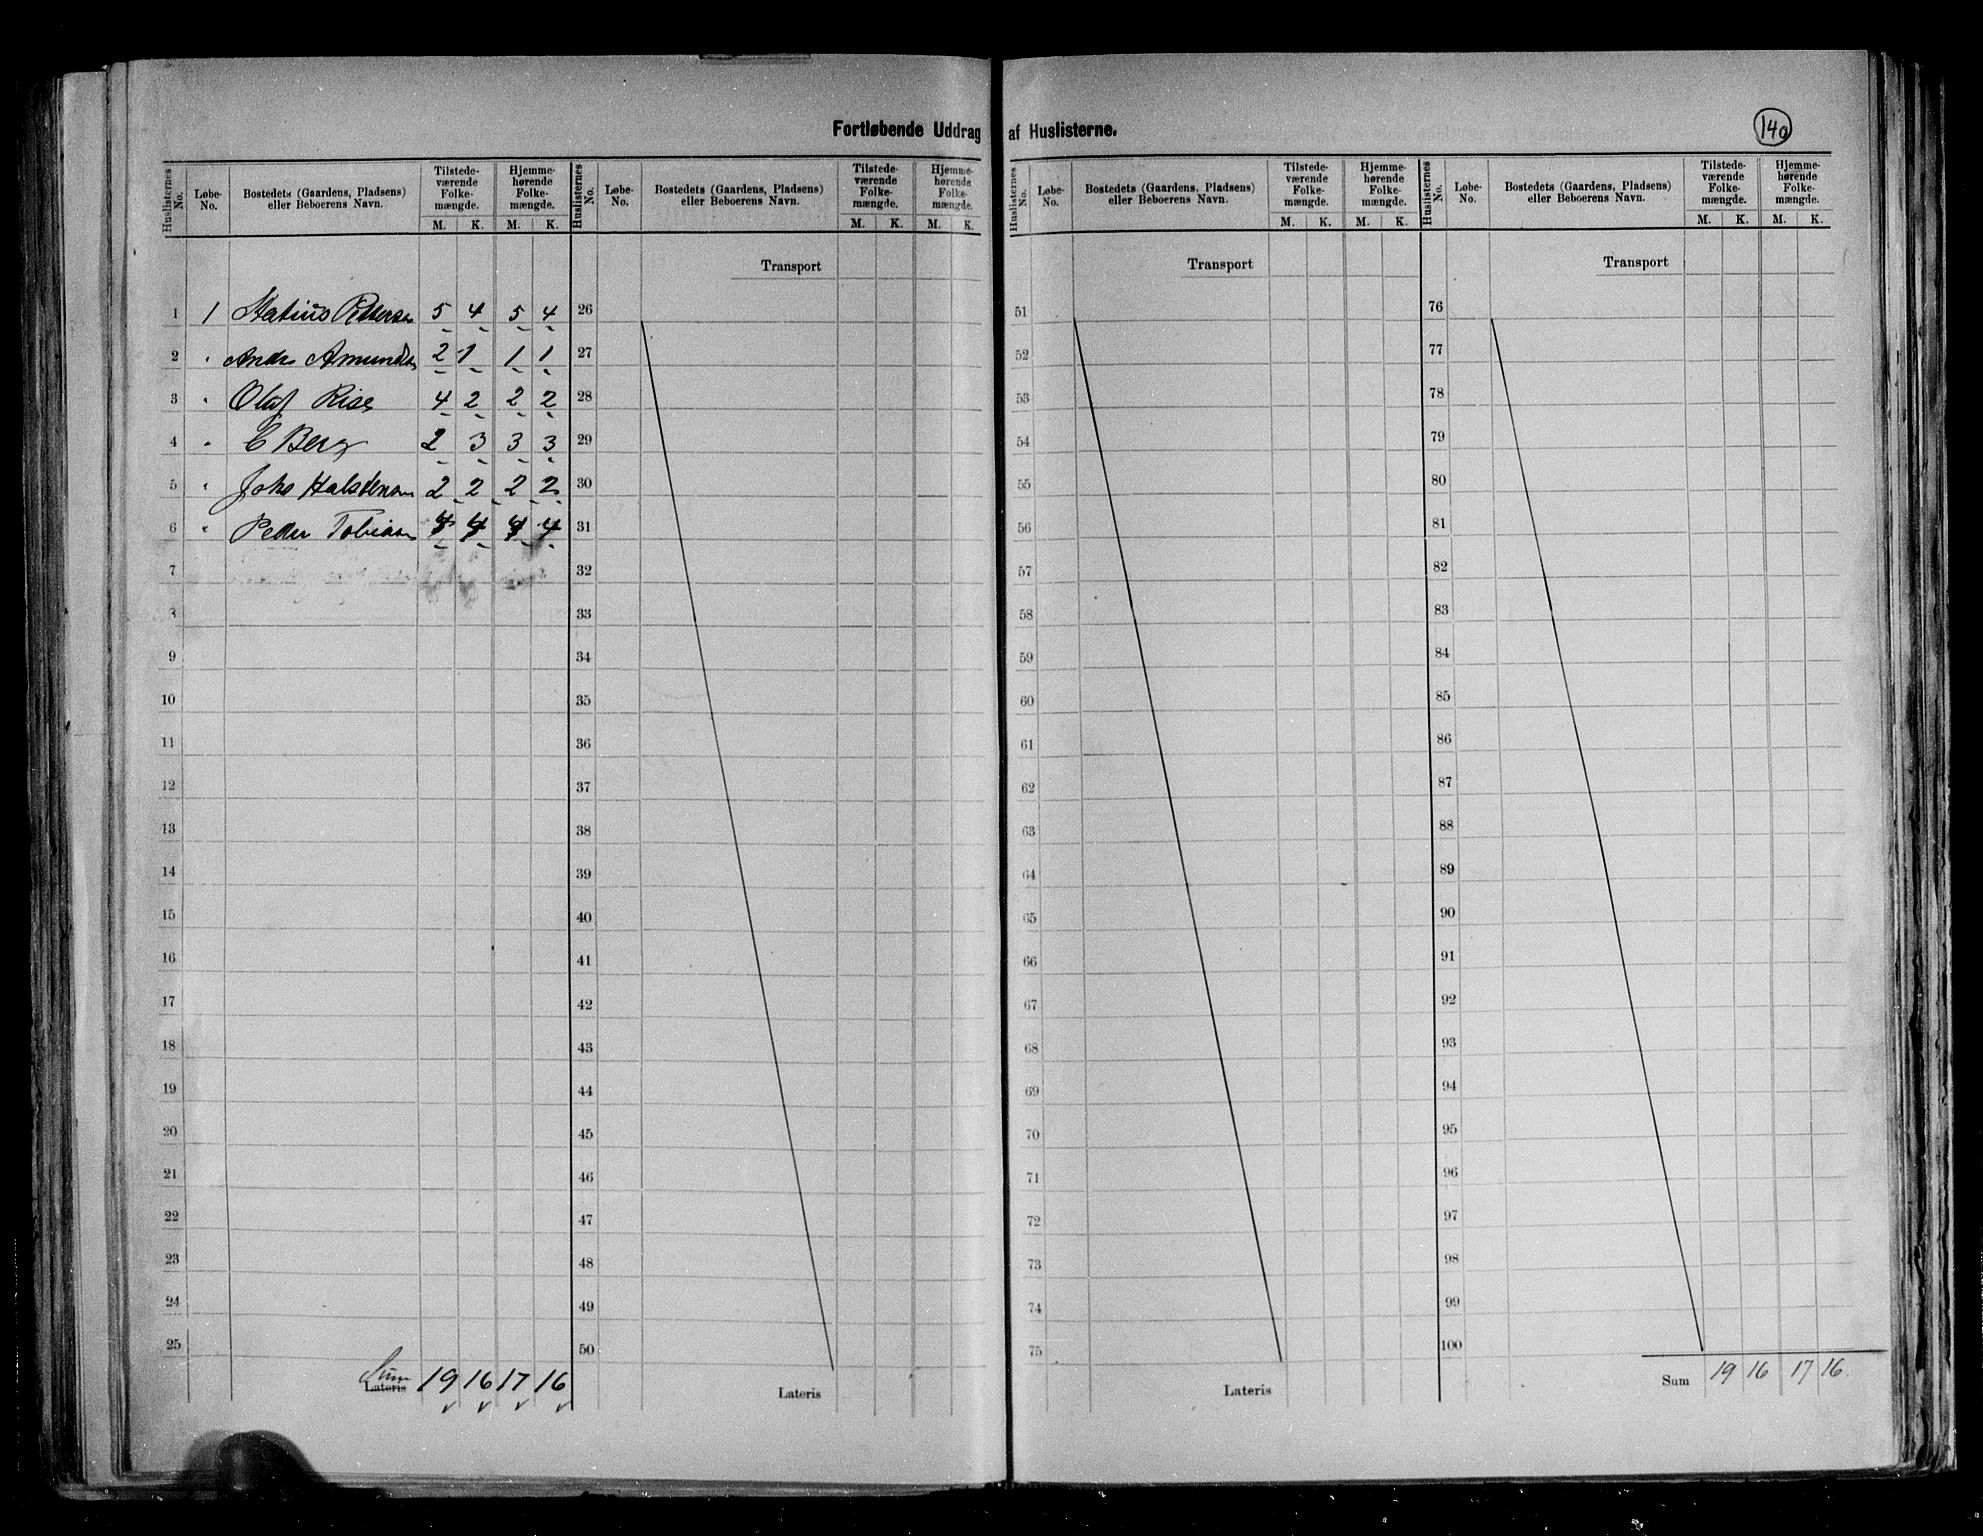 Fortløbende Uddrag af Huslisterne.
140
Huslisternes No. Løbe-No. Bostedets (Gaardens, Pladsens) eller Beboerens Navn. Tilstedeværende Folkemængde. M. K. Hjemmehørende Folkemængde. M. K.
Huslisternes No. Løbe-No. Bostedets (Gaardens, Pladsens) eller Beboerens Navn. Tilstedeværende Folkemængde. M. K. Hjemmehørende Folkemængde. M. K.
Huslisternes No. Løbe-No. Bostedets (Gaardens, Pladsens) eller Beboerens Navn. Tilstedeværende Folkemængde. M. K. Hjemmehørende Folkemængde. M. K.
Huslisternes No. Løbe-No. Bostedets (Gaardens, Pladsens) eller Beboerens Navn. Tilstedeværende Folkemængde. M. K. Hjemmehørende Folkemængde. M. K.
Transport Transport Transport
1 1 Pettersen 5 4 5 4 26 51 76
2 " Amundsen 2 1 1 1 27 52 77
3 " Olaf Rise 4 2 2 2 28 53 78
4 " C Berg 2 3 3 3 29 54 79
5 " Johs Halstensen 2 2 2 2 30 55 80
6 " Peder Tobiasen 4 4 4 4 31 56 81
7 32 57 82
8 33 58 83
9 34 59 84
10 35 60 85
11 36 61 86
12 37 62 87
13 38 63 88
14 39 64 89
15 40 65 90
16 41 66 91
17 42 67 92
18 43 68 93
19 44 69 94
20 45 70 95
21 46 71 96
22 47 72 97
23 48 73 98
24 49 74 99
25 50 75 100
Sum
Lateris 19 16 17 16 Lateris Lateris Sum 19 16 17 16